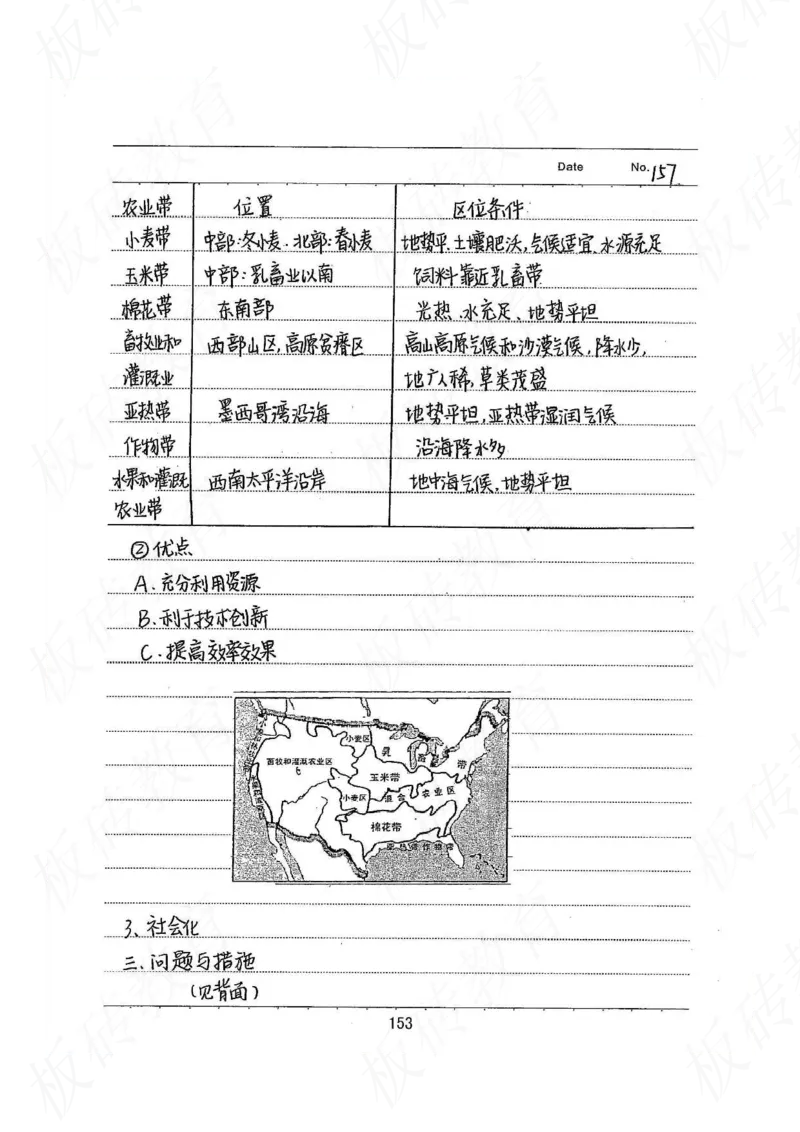 Date No. 157
农业带 位置 区位条件
小麦带 中部:冬小麦.北部:春小麦 地势平.土壤肥沃,气候适宜.水源充足
玉米带 中部:乳畜业以南 饲料靠近乳畜带
棉花带 东南部 光热.水充足、地势平坦
畜牧业和 西部山区,高原贫瘠区 高山高原气候和沙漠气候,降水少,
灌溉业 地广人稀,草类茂盛
亚热带 墨西哥湾沿海 地势平坦,亚热带湿润气候
作物带 沿海降水多
水果和灌溉 西南太平洋沿岸 地中海气候、地势平坦
农业带
②优点
A.充分利用资源
B.利于技术创新
C.提高效率效果
小麦区
乳 畜 带
畜牧和灌溉农业区
玉米带
小麦区 混合 农业区
棉花带
亚热带作物带
3、社会化
三、问题与措施
(见背面)
153
板砖教育